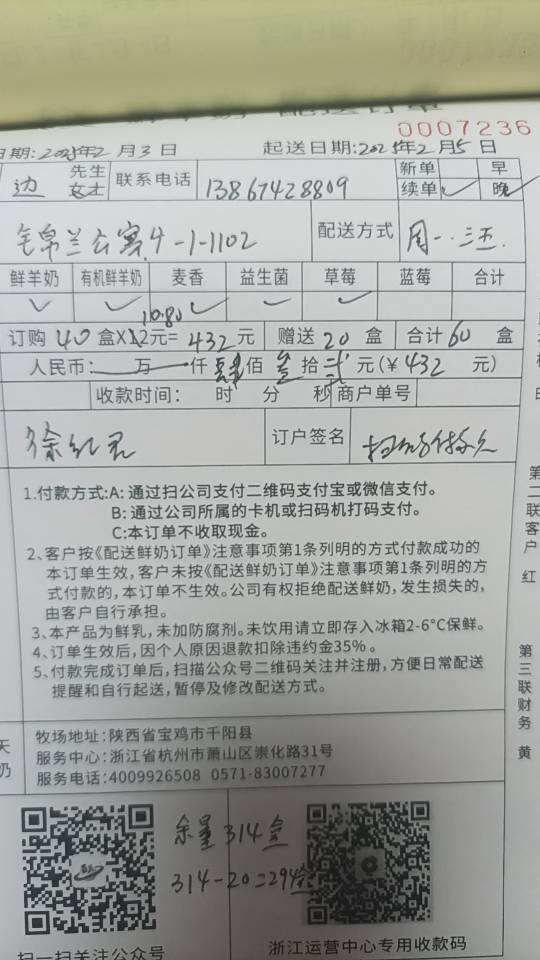 配送订单
0007236
日期:2025年2月3日 起送日期:2025年2月5日
边 先生 女士 联系电话 13867428809 新单 早
续单✓ 晚✓
锦帛兰公寓4-1-1102 配送方式 周一.三五.
鲜羊奶 有机鲜羊奶 麦香 益生菌 草莓 蓝莓 合计
✓ ✓ ✓ ✓ ✓
10.80
订购40盒X12元=432元 赠送20盒 合计60盒
人民币: 万 仟 肆佰 叁拾贰元(¥432元)
收款时间: 时 分 秒 商户单号
徐红君 订户签名
1.付款方式:A: 通过扫公司支付二维码支付宝或微信支付。
B: 通过公司所属的卡机或扫码机打码支付。
C:本订单不收取现金。
2、客户按《配送鲜奶订单》注意事项第1条列明的方式付款成功的
本订单生效,客户未按《配送鲜奶订单》注意事项第1条列明的方
式付款的,本订单不生效。公司有权拒绝配送鲜奶,发生损失的,
由客户自行承担。
3、本产品为鲜乳,未加防腐剂。未饮用请立即存入冰箱2-6°C保鲜。
4、订单生效后,因个人原因退款扣除违约金35%。
5、付款完成订单后,扫描公众号二维码关注并注册,方便日常配送
提醒和自行起送,暂停及修改配送方式。
牧场地址:陕西省宝鸡市千阳县
服务中心:浙江省杭州市萧山区崇化路31号
服务电话:4009926508 0571-83007277
余量314盒
314-20=294盒
扫一扫关注公众号 浙江运营中心专用收款码
第二联客户 红
第三联财务 黄
天
奶